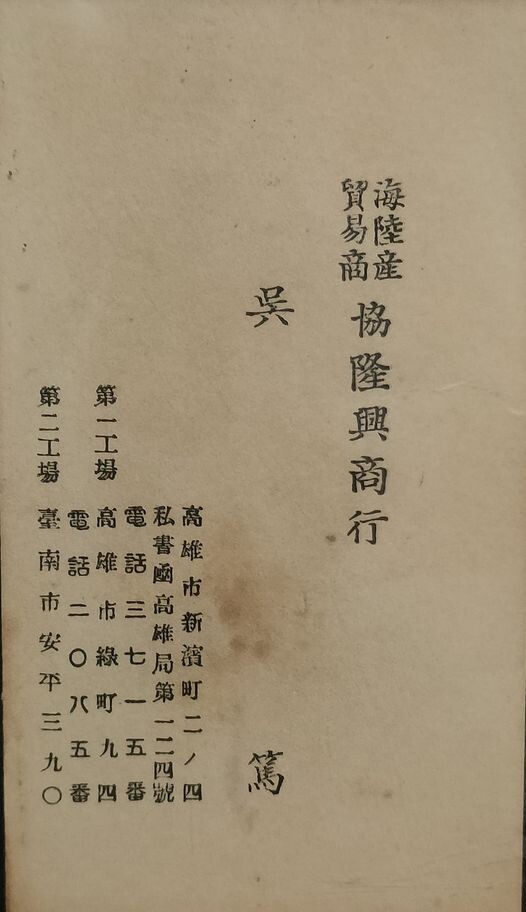 海陸産
貿易商
協隆興商行
吳篤
高雄市新濱町二ノ四
私書凾高雄局第一二四號
電話三七一五番
第一工場 高雄市綠町九四
電話二〇八五番
第二工場 臺南市安平三九〇